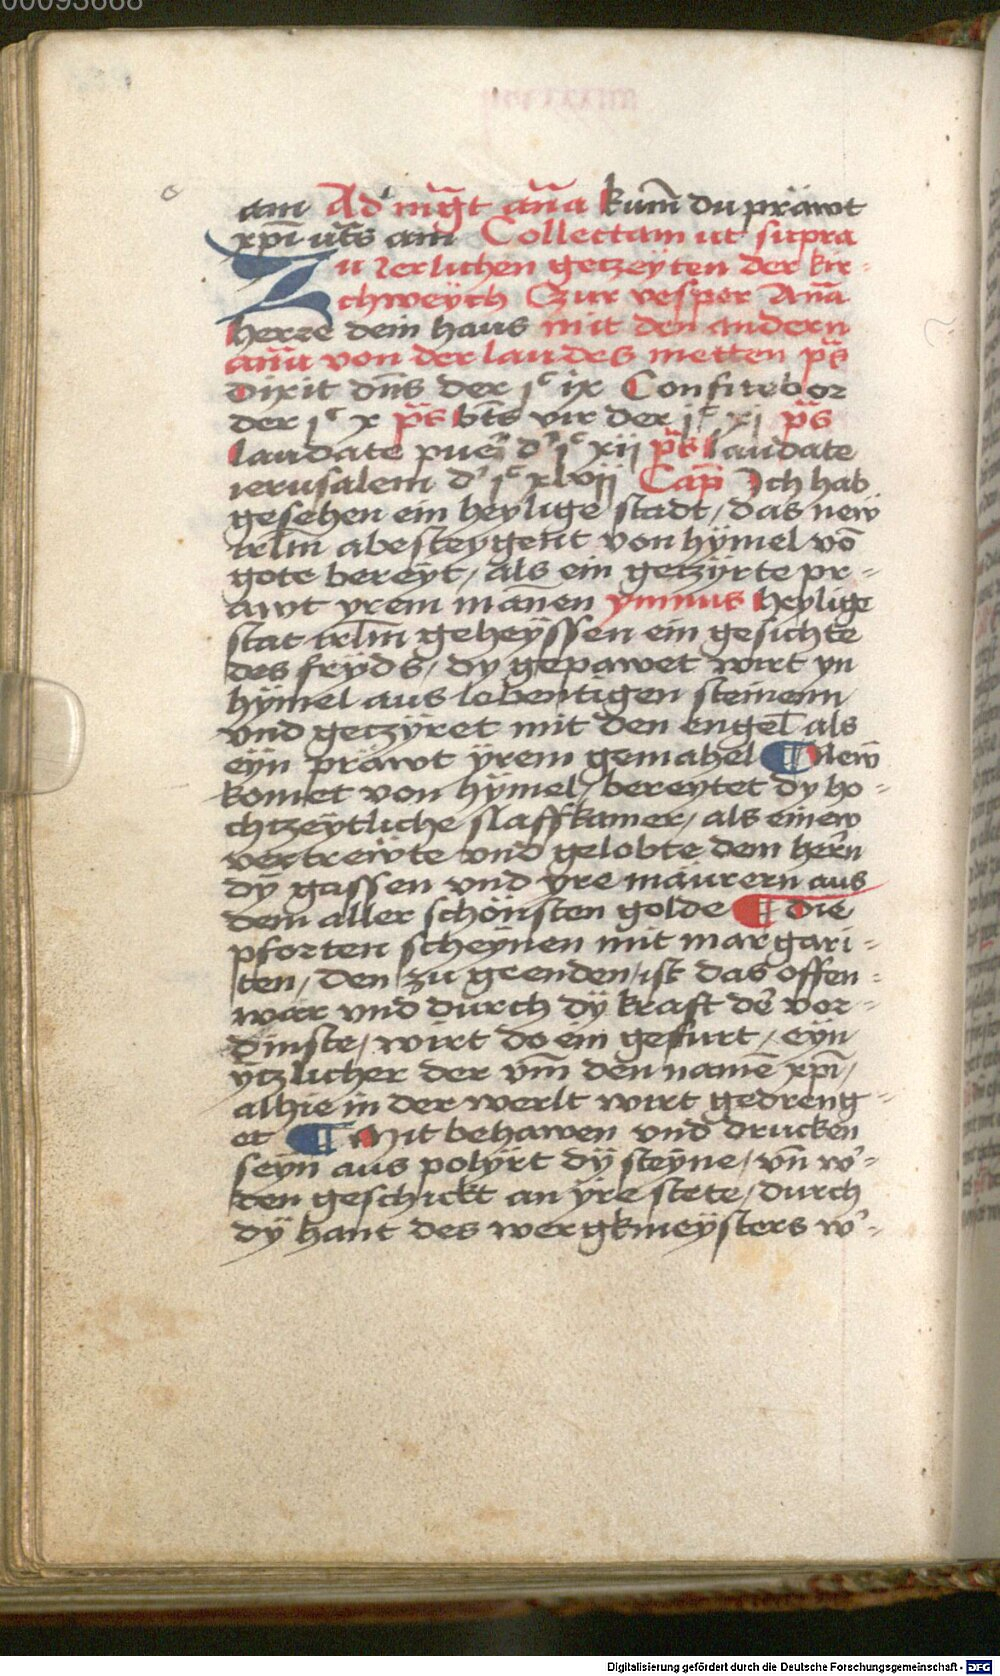 00093668
am Ad mag̃t an̄a kum̄ du präwt
xp̄i ut̄s am Collectam ut supra
Zu Jerlichen getzeyten der kir-
chweÿch Czur vesper An̄a
herre dein haus mit den andern
an̄a von der laudes metten p̄s
Dixit dn̄s der jᶜ ix Confitebor
der jᶜ x p̄s bt̄s vir der jᶜ xj p̄s
laudate puer̄ d' jᶜ xij p̄s laudate
ierusalem d' jᶜ xlvij Cap̄ Ich hab
gesehen ein heylige stadt / das new
irl̄m absteygent von hÿmel vō
gote bereÿt / als ein getzÿrte pr-
awt yrem mānen ymnus Heylige
stat irl̄m geheÿssen ein gesichte
des frÿds / dy gepawet wirt yn
hÿmel aus lebentigen steinenn
vnd getzÿret mit den engel̄ als
eÿn präwt ÿrem gemahel ¶ New
komet von hÿmel / bereytet dy ho-
chtzeÿtliche slaffkamer / als einew
vertrewte vnd gelobte dem herrn
dÿ gassen vnd yre maurern aus
dem aller schönsten golde ¶ Die
pforten scheÿnen mit margari-
ten / den zu geenden / ist das offen-
war vnd durch dÿ kraft der vor-
dinste / wirt do ein gefurt / eÿn
ytzlicher der vm̄ den namē xp̄i /
alhie in der werlt wirt gedreng-
et ¶ Mit behawen vnd drucken
seÿn aus polÿrt dÿ steÿne / vn̄ w'-
den geschickt an ÿre stete / durch
dÿ hant des wergkmeÿsters w'-
Digitalisierung gefördert durch die Deutsche Forschungsgemeinschaft - DFG